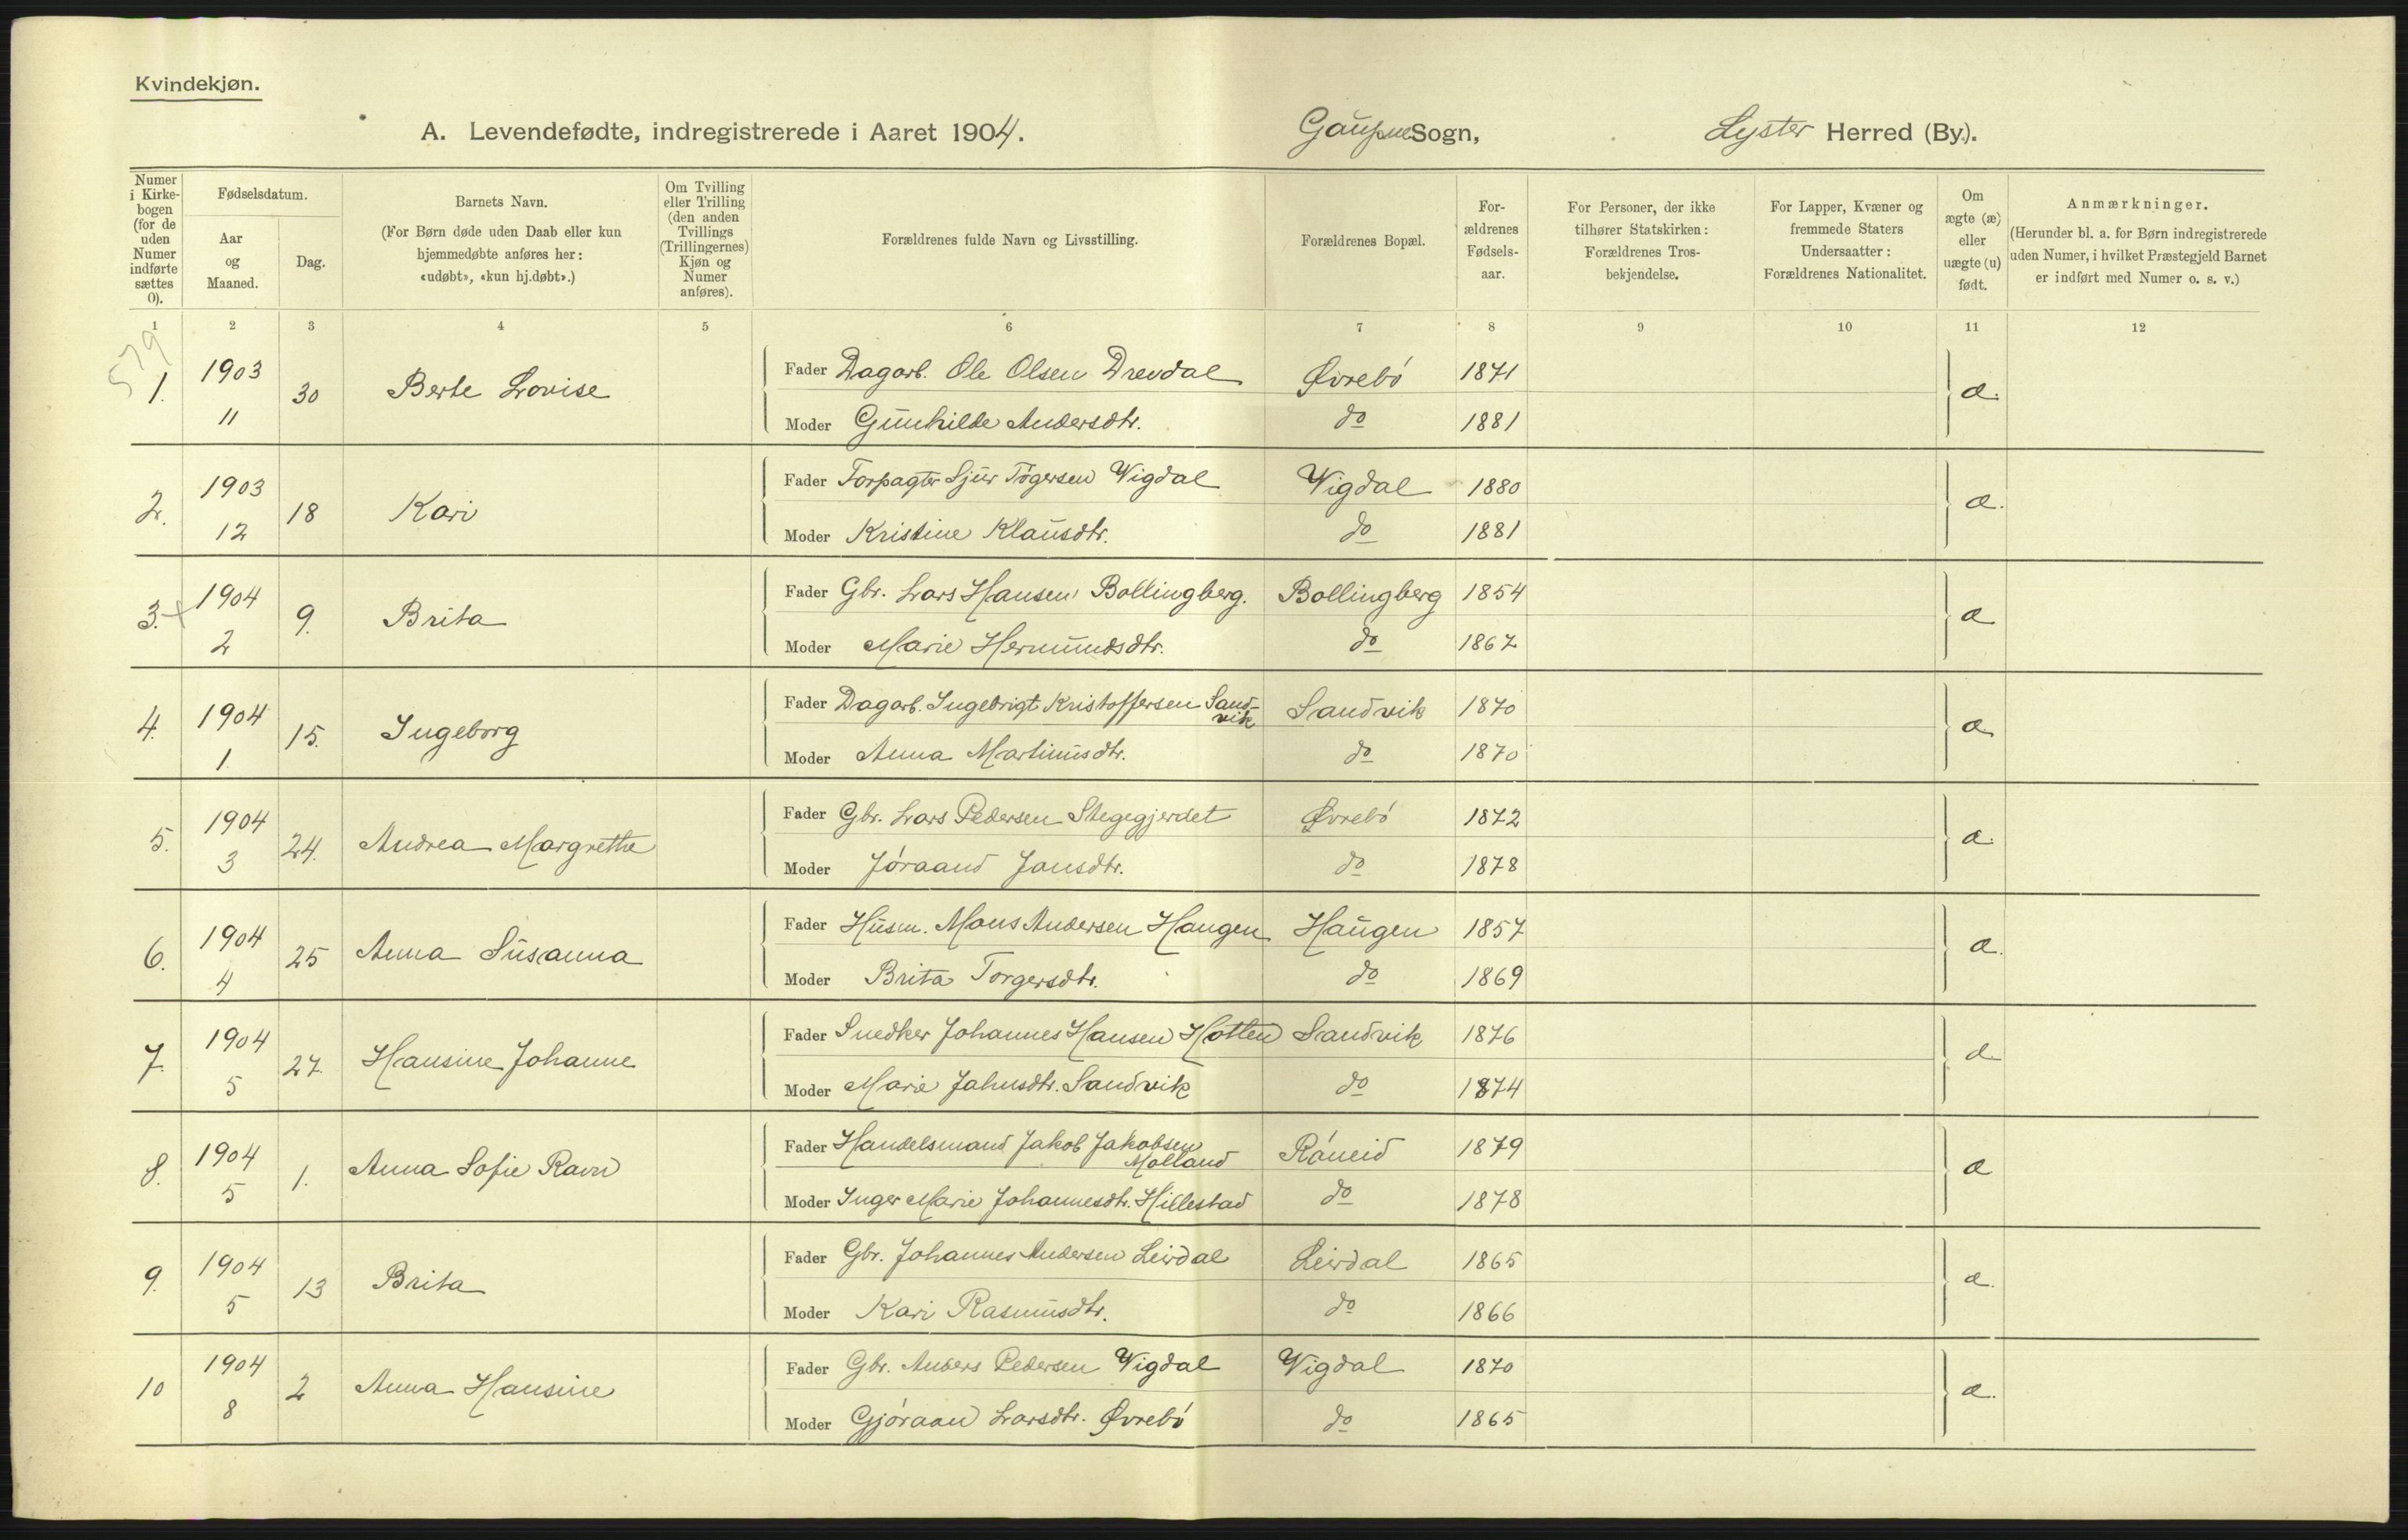 Kvindekjøn.
A. Levendefødte, indregistrerede i Aaret 1904. Gaupne Sogn, Lyster Herred (By).
Numer i Kirkebogen (for de uden Numer indførte sættes 0).
Fødselsdatum.
Aar og Maaned.
Dag.
Barnets Navn.
(For Børn døde uden Daab eller kun hjemmedøbte anføres her: «udøbt», «kun hj.døbt».)
Om Tvilling eller Trilling (den anden Tvillings (Trillingernes) Kjøn og Numer anføres).
Forældrenes fulde Navn og Livsstilling.
Forældrenes Bopæl.
For-ældrenes Fødsels-aar.
For Personer, der ikke tilhører Statskirken: Forældrenes Tros-bekjendelse.
For Lapper, Kvæner og fremmede Staters Undersaatter: Forældrenes Nationalitet.
Om ægte (æ) eller uægte (u) født.
Anmærkninger.
(Herunder bl. a. for Børn indregistrerede uden Numer, i hvilket Præstegjeld Barnet er indført med Numer o. s. v.)
1 2 3 4 5 6 7 8 9 10 11 12
579
1. 1903 11 30 Berte Lovise Fader Dagarb. Ole Olsen Drevdal Øvrebö 1871 æ.
Moder Gunhilde Andersdtr. do 1881
2. 1903 12 18 Kari Fader Forpagter Sjur Tögersen Wigdal Wigdal 1880 æ.
Moder Kristine Klausdtr. do 1881
3. + 1904 2 9. Brita Fader Gbr. Lars Hansen Bollingberg. Bollingberg 1854 æ
Moder Marie Hermundsdtr. do 1867
4. 1904 1. 15. Ingeborg Fader Dagarb. Ingebrigt Kristoffersen Sand-vik Sandvik 1870 æ
Moder Anna Martinusdtr. do 1870
5. 1904 3 24. Andrea Margrethe Fader Gbr. Lars Pedersen Stegegjerdet Øvrebö 1872 æ.
Moder Jöraand Jansdtr. do 1878
6. 1904 4 25 Anna Susanna Fader Husm. Mons Andersen Haugen Haugen 1857 æ.
Moder Brita Torgersdtr. do 1869
7. 1904 5 27. Hansine Johanne Fader Snedker Johannes Hansen Hotten Sandvik 1876 æ
Moder Marie Jahnsdtr. Sandvik do 1874
8. 1904 5 1. Anna Sofie Ravn Fader Handelsmand Jakob Jakobsen Molland Röneid 1879 æ
Moder Inger Marie Johannesdtr. Hillestad do 1878
9. 1904 5 13 Brita Fader Gbr. Johannes Andersen Leirdal Leirdal 1865 æ.
Moder Kari Rasmusdtr. do 1866
10 1904 8 2 Anna Hansine Fader Gbr. Anders Pedersen Wigdal Wigdal 1870 æ.
Moder Gjöraan Larsdtr. Øvrebö do 1865